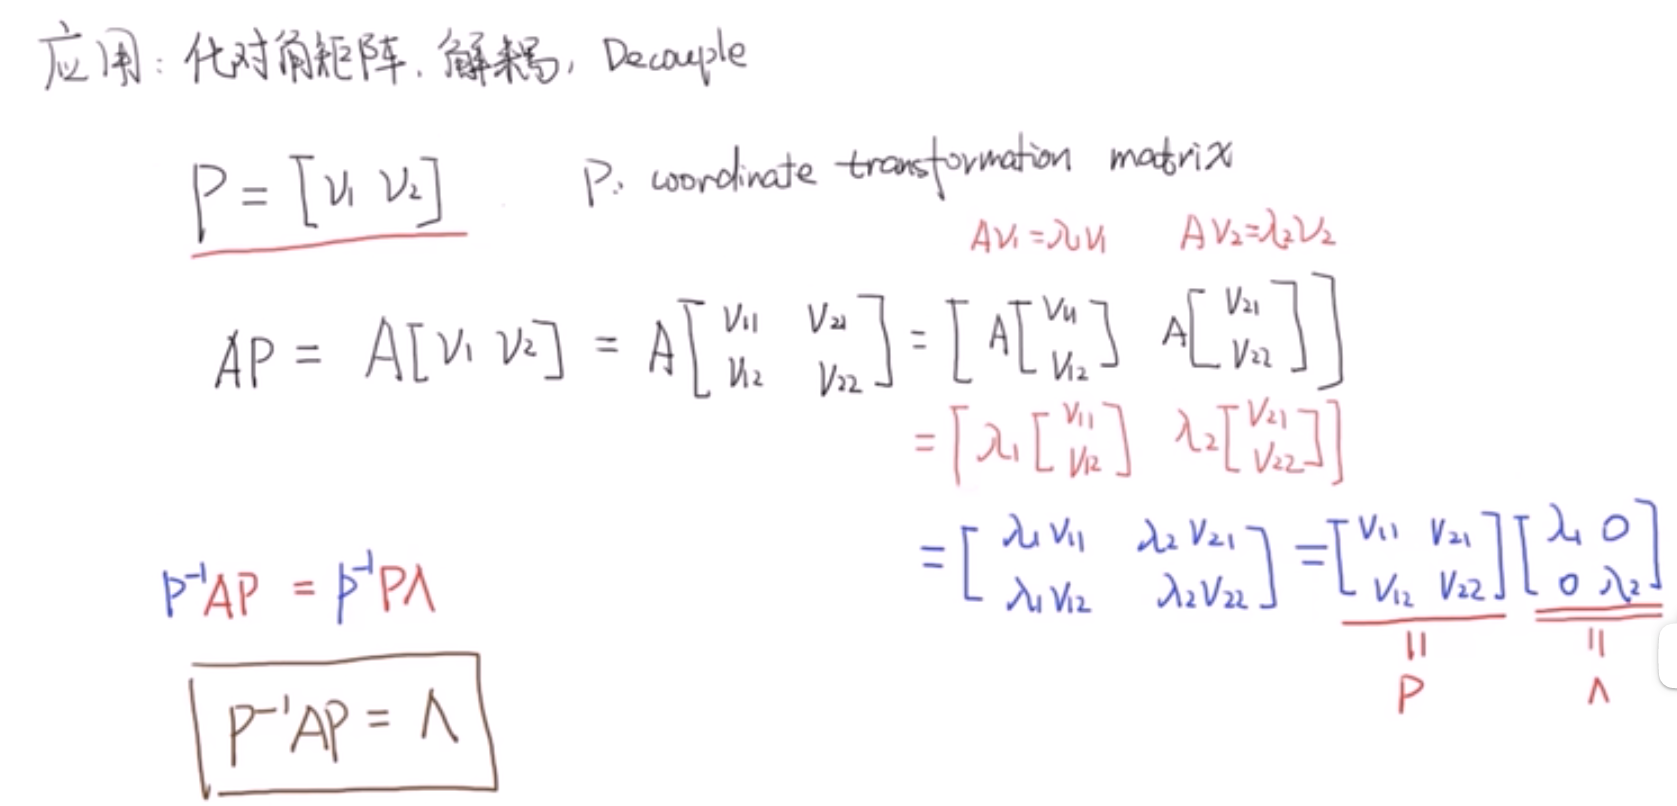 应用: 化对角矩阵. 解耦, Decouple
P = [v₁ v₂]   P: coordinate transformation matrix
Av₁ = λ₁v₁   Av₂ = λ₂v₂
AP = A[v₁ v₂] = A[v₁₁ v₂₁; v₁₂ v₂₂] = [A[v₁₁; v₁₂] A[v₂₁; v₂₂]]
= [λ₁[v₁₁; v₁₂] λ₂[v₂₁; v₂₂]]
= [λ₁v₁₁ λ₂v₂₁; λ₁v₁₂ λ₂v₂₂] = [v₁₁ v₂₁; v₁₂ v₂₂] [λ₁ 0; 0 λ₂]
P⁻¹AP = P⁻¹PΛ
= P   = Λ
P⁻¹AP = Λ